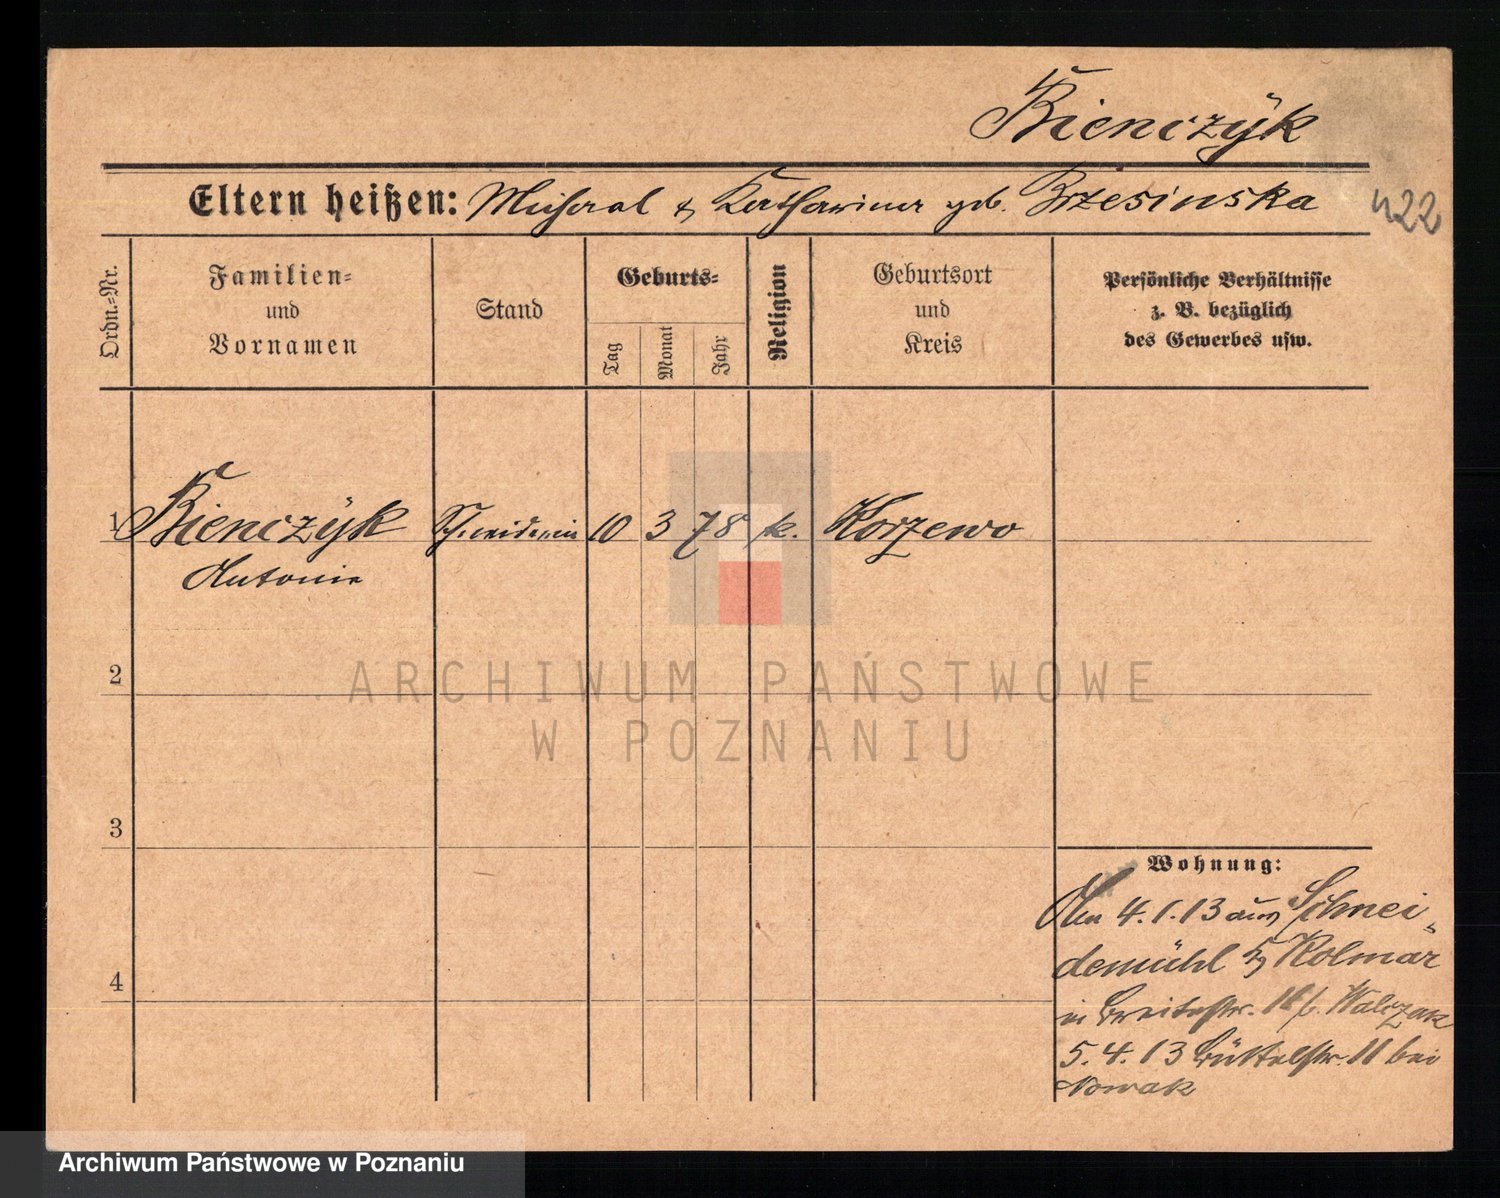 Bienczÿk
Eltern heißen: Michael & Katharina geb. Brzesinska
422
Ordn.-Nr.
Familien-
und
Vornamen
Stand
Geburts-
Tag
Monat
Jahr
Religion
Geburtsort
und
Kreis
Persönliche Verhältnisse
z. B. bezüglich
des Gewerbes usw.
1 Bienczÿk Schneiderin 10 3 78 k. Korzewo
Antonie
2
ARCHIWUM PAŃSTWOWE
W POZNANIU
3
Wohnung:
Am 4.1.13 aus Schnei-
demühl Kolmar
in Breitestr. 16 b. Walczak
4
5.4.13 Büttelstr. 11 bei
Nowak
Archiwum Państwowe w Poznaniu